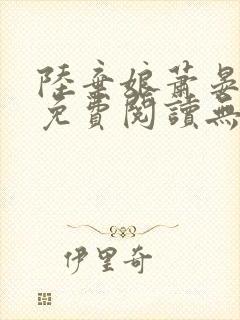 陸棄娘蕭晏
免費閱讀無
伊里奇